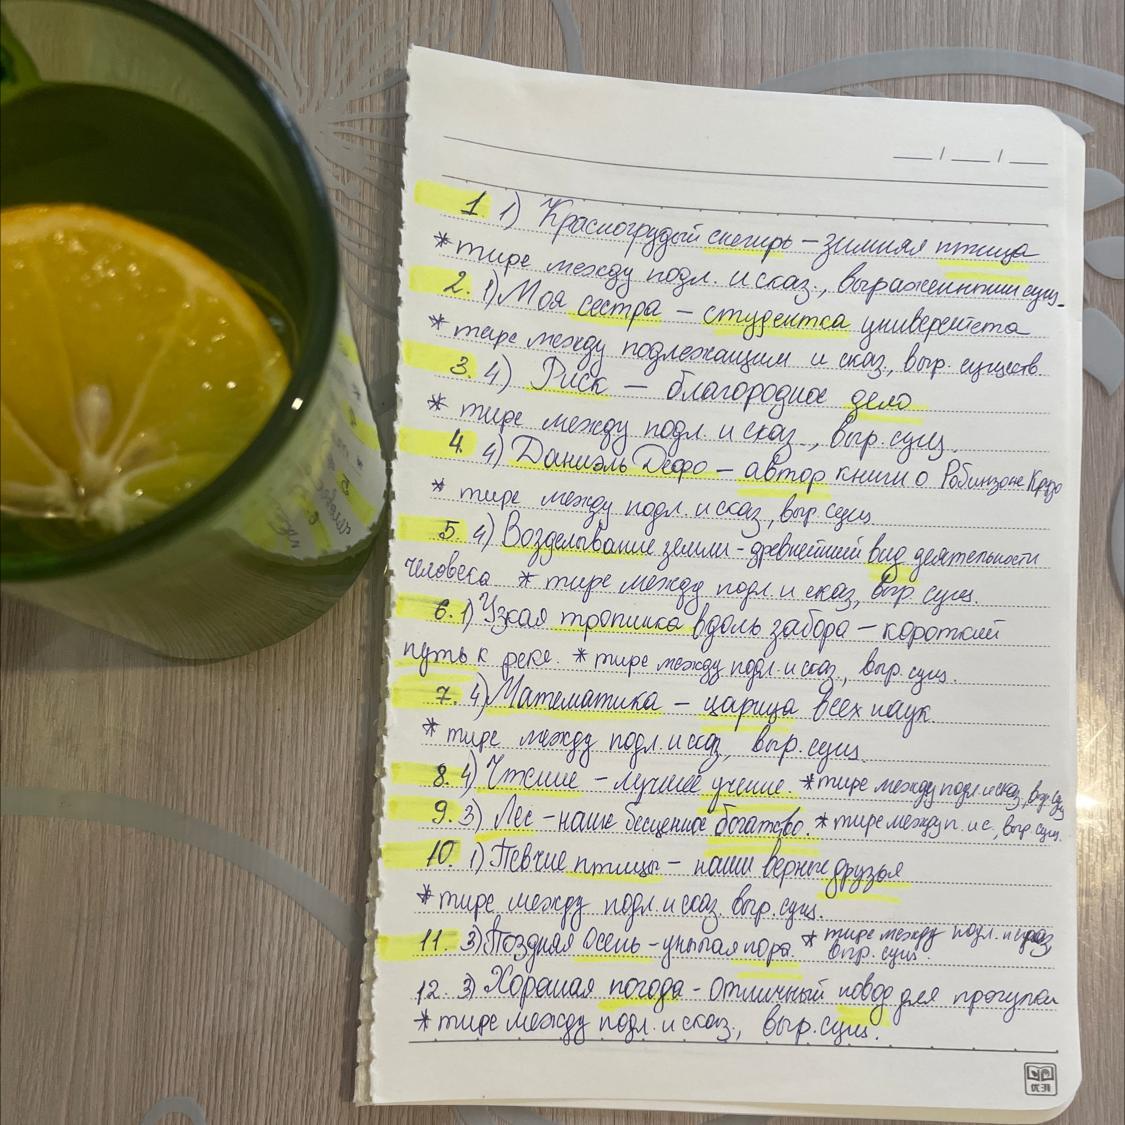 1. 1) Красногрудый снегирь – зимняя птица
* тире между подл. и сказ., выраженными сущ.
2. 1) Моя сестра – студентка университета
* тире между подлежащим и сказ., выр. существ.
3. 4) Риск – благородное дело
* тире между подл. и сказ., выр. сущ.
4. 4) Даниэль Дефо – автор книги о Робинзоне Крузо
* тире между подл. и сказ., выр. сущ.
5. 4) Возделывание земли - древнейший вид деятельности
человека * тире между подл. и сказ., выр. сущ.
6. 1) Узкая тропинка вдоль забора – короткий
путь к реке. * тире между подл. и сказ., выр. сущ.
7. 4) Математика – царица всех наук
* тире между подл. и сказ., выр. сущ.
8. 4) Чтение – лучшее учение. * тире между подл. и сказ., выр. сущ.
9. 3) Лес – наше бесценное богатство. * тире между п. и с., выр. сущ.
10. 1) Певчие птицы – наши верные друзья
* тире между подл. и сказ. выр. сущ.
11. 3) Поздняя осень – унылая пора. * тире между подл. и сказ,
выр. сущ.
12. 3) Хорошая погода - отличный повод для прогулки
* тире между подл. и сказ., выр. сущ.